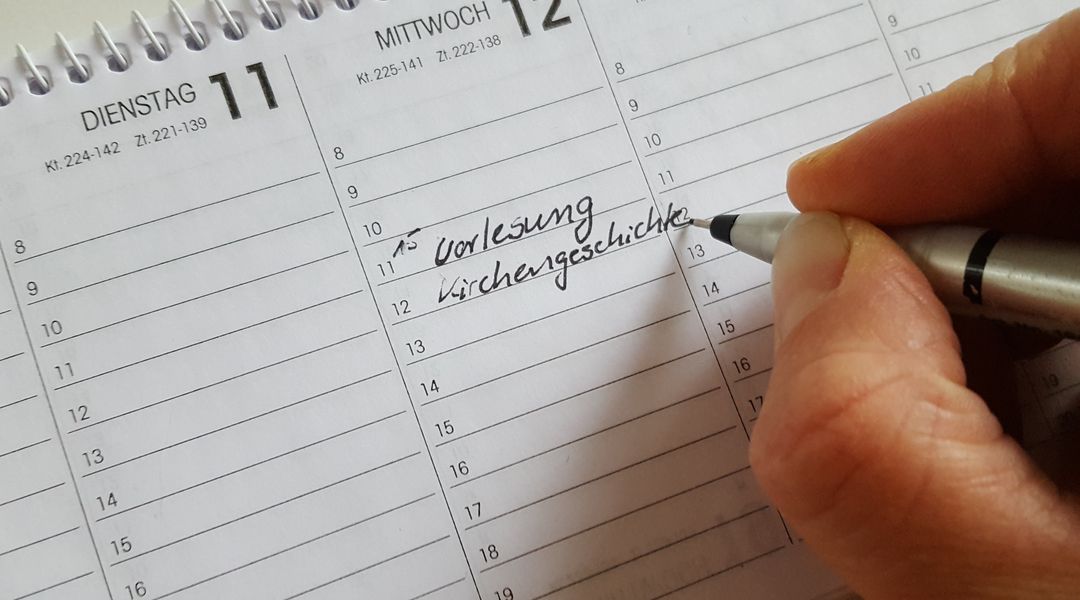 DIENSTAG 11
Kt. 224-142 Zt. 221-139
8
9
10
11
12
13
14
15
16
MITTWOCH 12
Kt. 225-141 Zt. 222-138
8
9
10
11 15 Vorlesung
12 Kirchengeschichte
13
14
15
16
17
18
19
8
9
10
11
12
13
14
15
16
17
9
10
11
19